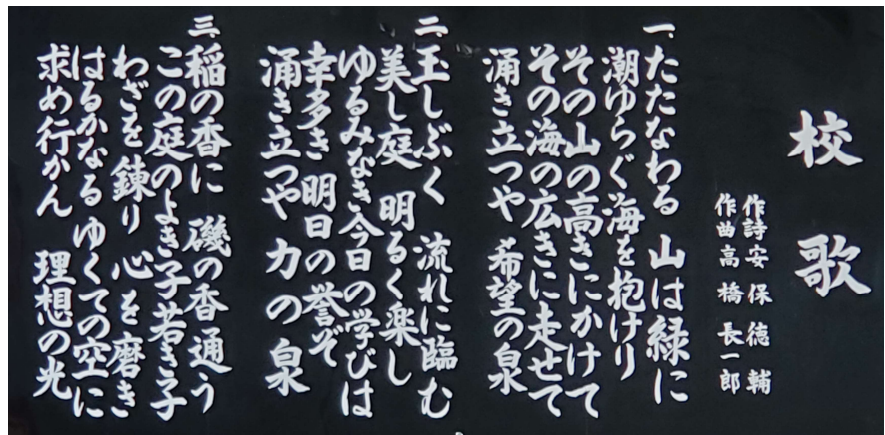 校歌
作詩 安保徳輔
作曲 高橋長一郎
一、たたなわる 山は緑に
潮ゆらぐ海を抱けり
その山の高きにかけて
その海の広きに走せて
涌き立つや 希望の泉
二、玉しぶく 流れに臨む
美し庭 明るく楽し
ゆるみなき今日の学びは
幸多き 明日の誉ぞ
涌き立つや 力の泉
三、稲の香に 磯の香通う
この庭のよき子若き子
わざを錬り 心を磨き
はるかなる ゆくての空に
求め行かん 理想の光